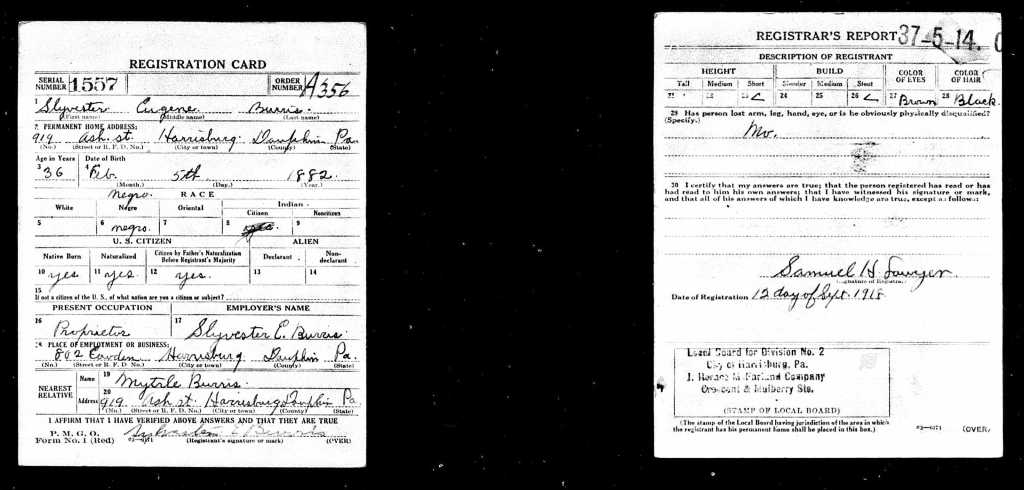 REGISTRATION CARD
SERIAL NUMBER 1557 ORDER NUMBER A356
1 Slyvester Eugene Burris.
(First name) (Middle name) (Last name)
2 PERMANENT HOME ADDRESS:
919 Ash st. Harrisburg Dauphin Pa.
(No.) (Street or R. F. D. No.) (City or town) (County) (State)
Age in Years Date of Birth
3 36 4 Feb. 5th 1882.
(Month.) (Day.) (Year.)
negro. RACE
White Negro Oriental Indian
Citizen Noncitizen
5 6 negro. 7 8 9
U. S. CITIZEN ALIEN
Native Born Naturalized Citizen by Father's Naturalization Before Registrant's Majority Declarant Non-declarant
10 yes 11 yes. 12 yes. 13 14
15
If not a citizen of the U. S., of what nation are you a citizen or subject?
PRESENT OCCUPATION EMPLOYER'S NAME
16 Propraetor 17 Slyvester E. Burris
18 PLACE OF EMPLOYMENT OR BUSINESS:
802 Cowden Harrisburg Dauphin Pa.
(No.) (Street or R. F. D. No.) (City or town) (County) (State)
NEAREST RELATIVE Name 19 Myrtle Burris.
Address 20 919 Ash st. Harrisburg Dauphin Pa
(No.) (Street or R. F. D. No.) (City or town) (County) (State)
I AFFIRM THAT I HAVE VERIFIED ABOVE ANSWERS AND THAT THEY ARE TRUE
P. M. G. O.
Form No. 1 (Red) 03-6171 Sylvester E Burris
(Registrant's signature or mark) (OVER)
REGISTRAR'S REPORT 37-5-14. C
DESCRIPTION OF REGISTRANT
HEIGHT BUILD COLOR OF EYES COLOR OF HAIR
Tall Medium Short Slender Medium Stout
21 22 23 24 25 26 27 Brown 28 Black
29 Has person lost arm, leg, hand, eye, or is he obviously physically disqualified?
(Specify.) No.
30 I certify that my answers are true; that the person registered has read or has
had read to him his own answers; that I have witnessed his signature or mark,
and that all of his answers of which I have knowledge are true, except as follows:
Samuel H. Sawyer
(Signature of Registrar)
Date of Registration 12 day of Sept. 1918
Local Board for Division No. 2
City of Harrisburg, Pa.
J. Horace McFarland Company
Crescent & Mulberry Sts.
(STAMP OF LOCAL BOARD)
(The stamp of the Local Board having jurisdiction of the area in which
the registrant has his permanent home shall be placed in this box.)
03-6171 (OVER)